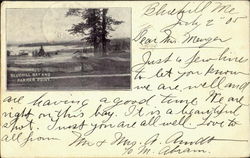 Bluehill Me
July 2" 05
BLUEHILL BAY AND
PARKER POINT.
Dear Mr.
Just a few lines
to let you know
we are well and
are having a good time We are
right on this bay. It is a beautiful
spot. Trust you are all well Love to
all from Mr & Mrs.